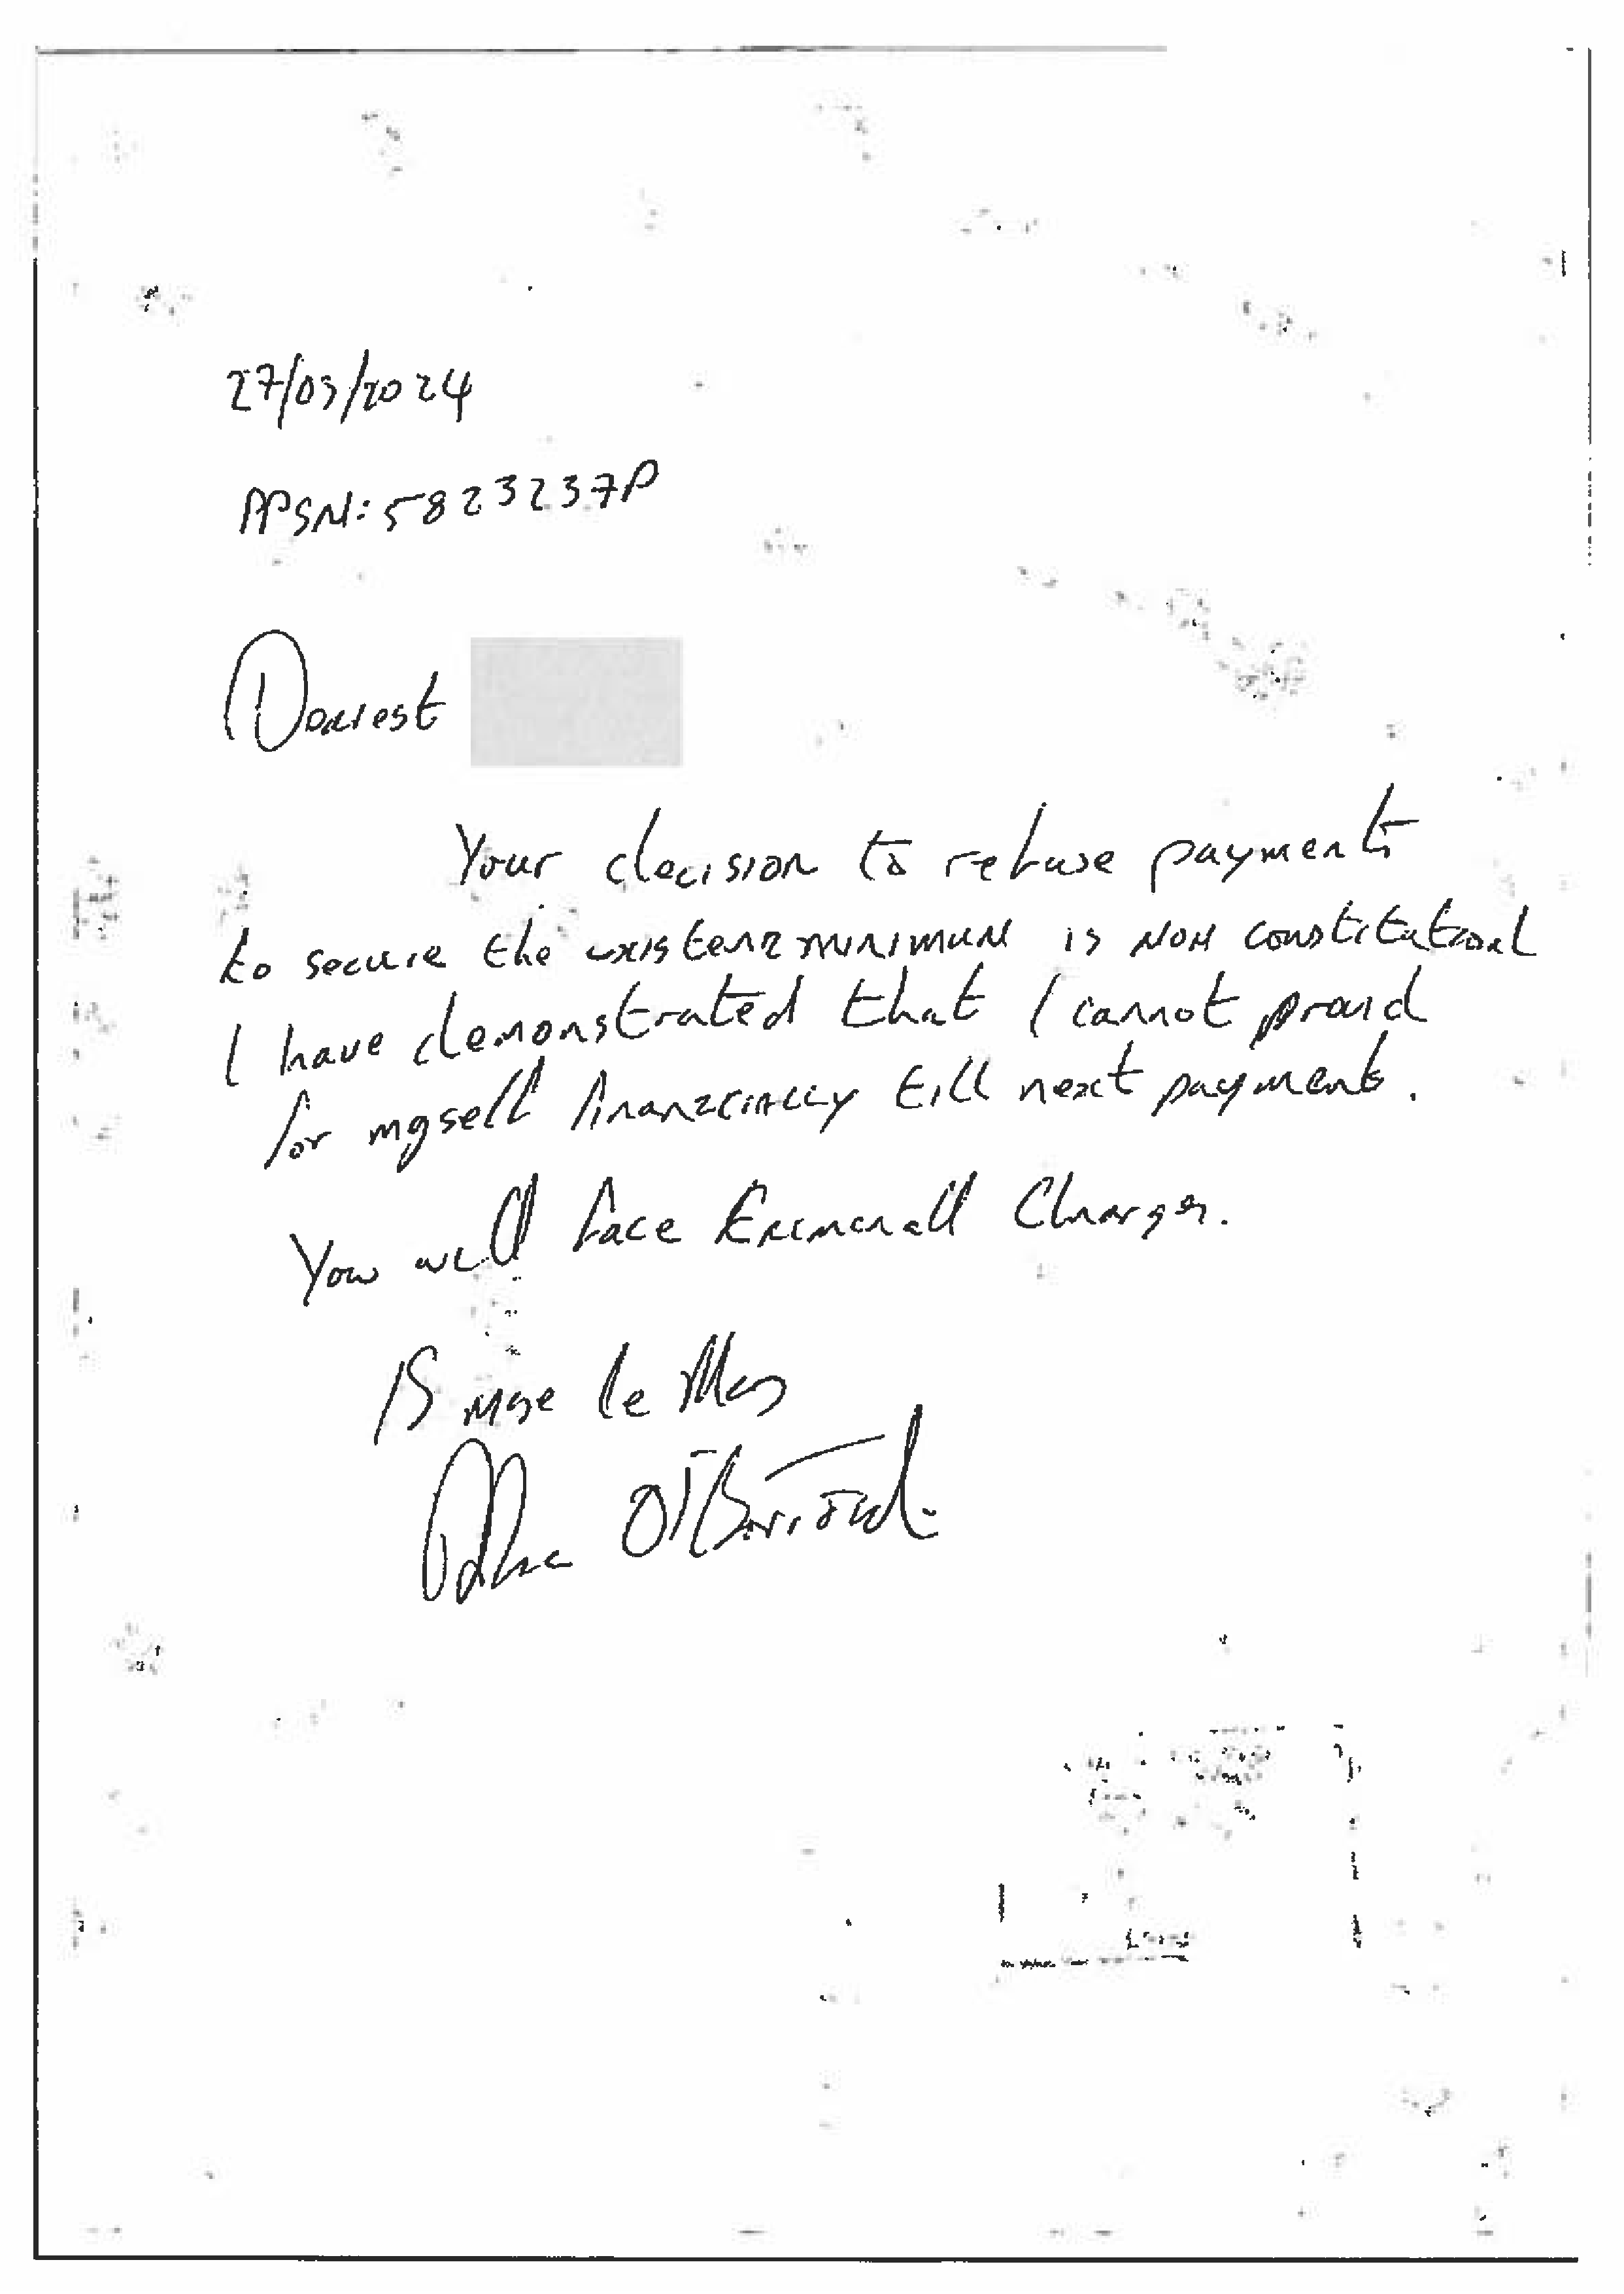 27/03/2024
PPSN: 5823237P
Dearest
Your decision to refuse payments
to secure the existenzminimum is NON constitutional
I have demonstrated that I cannot provid
for mysell finanzcially till next payment.
You will face Kriminall Charges.
IS mise le Meas